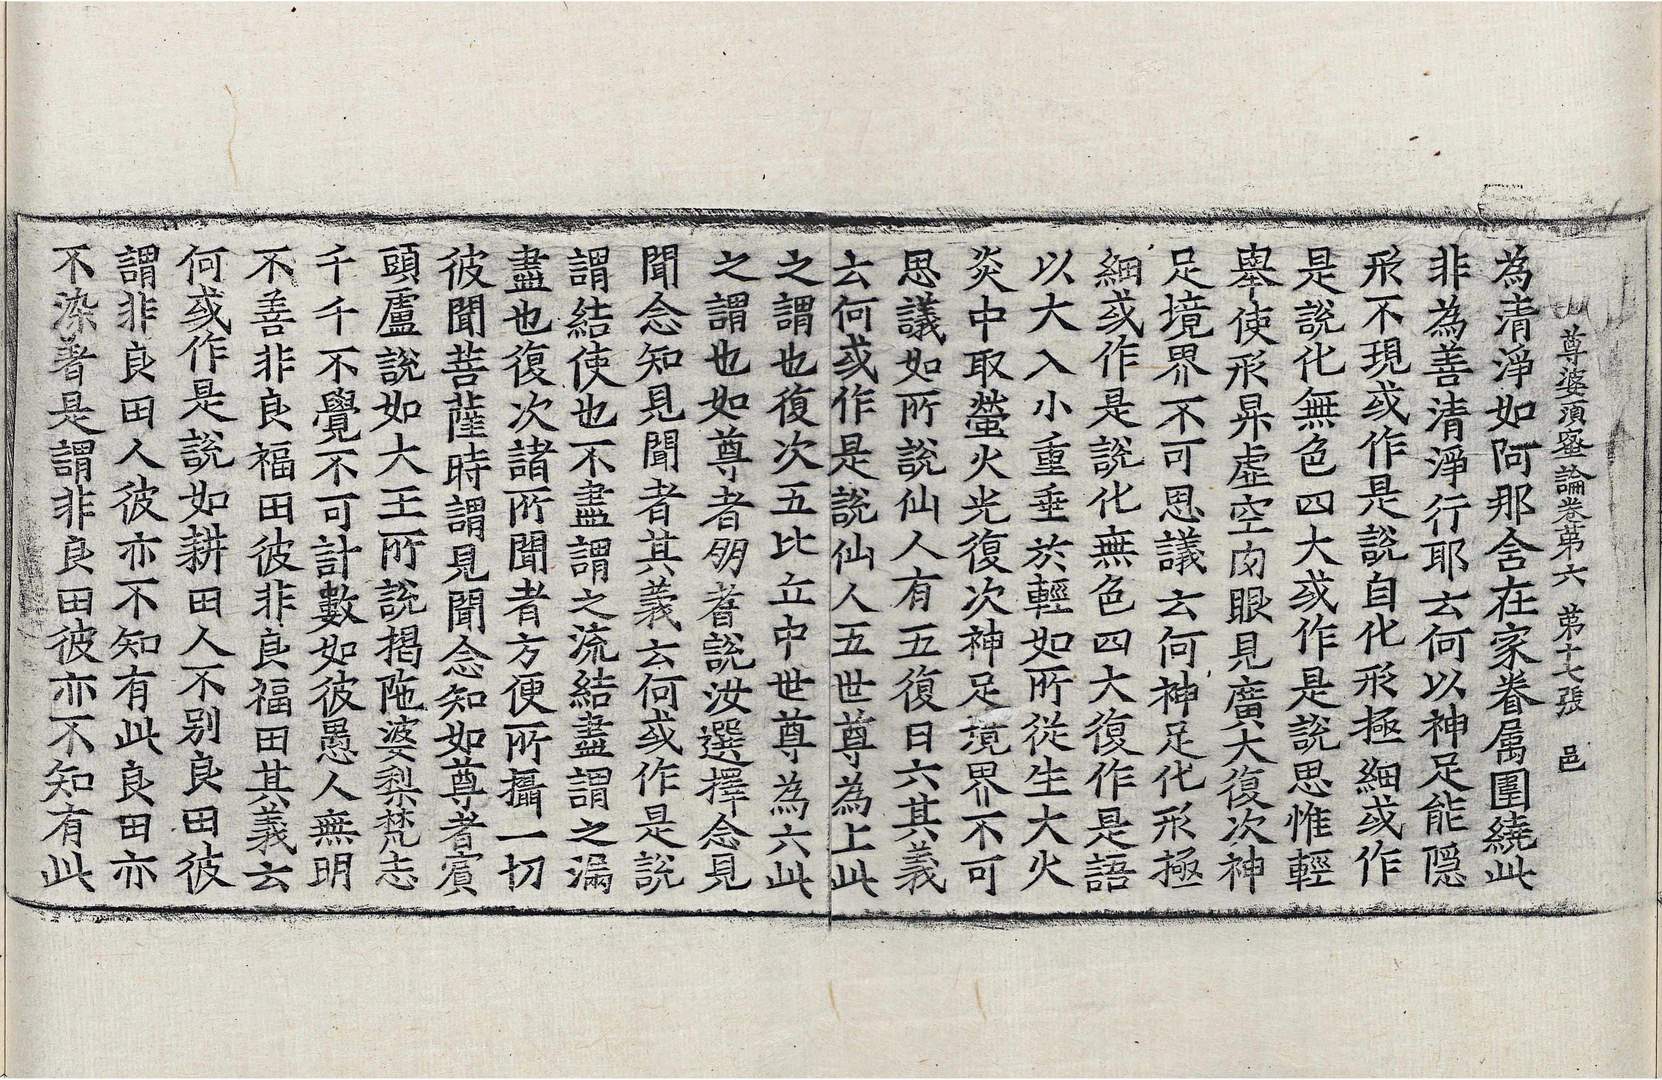 尊婆須蜜論卷第六 第十七張 邑
為清淨如阿那含在家眷属圍繞此
非為善清淨行耶云何以神足能隱
形不現或作是說自化形極細或作
是說化無色四大或作是說思惟輕
舉使形昇虛空肉眼見廣大復次神
足境界不可思議云何神足化形極
細或作是說化無色四大復作是語
以大入小重垂於輕如所從生大火
炎中取螢火光復次神足境界不可
思議如所說仙人有五復曰六其義
云何或作是說仙人五世尊為上此
之謂也復次五比丘中世尊為六此
之謂也如尊者朋耆說汝選擇念見
聞念知見聞者其義云何或作是說
謂結使也不盡謂之流結盡謂之漏
盡也復次諸所聞者方便所攝一切
彼聞菩薩時謂見聞念知如尊者賓
頭盧說如大王所說揭陁婆梨梵志
千千不覺不可計數如彼愚人無明
不善非良福田彼非良福田其義云
何或作是說如耕田人不別良田彼
謂非良田人彼亦不知有此良田亦
不染著是謂非良田彼亦不知有此